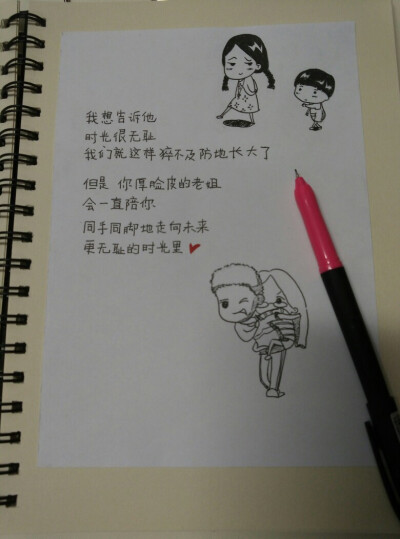 我想告诉他
时光很无耻
我们就这样猝不及防地长大了
但是 你厚脸皮的老姐
会一直陪你
同手同脚地走向未来
更无耻的时光里